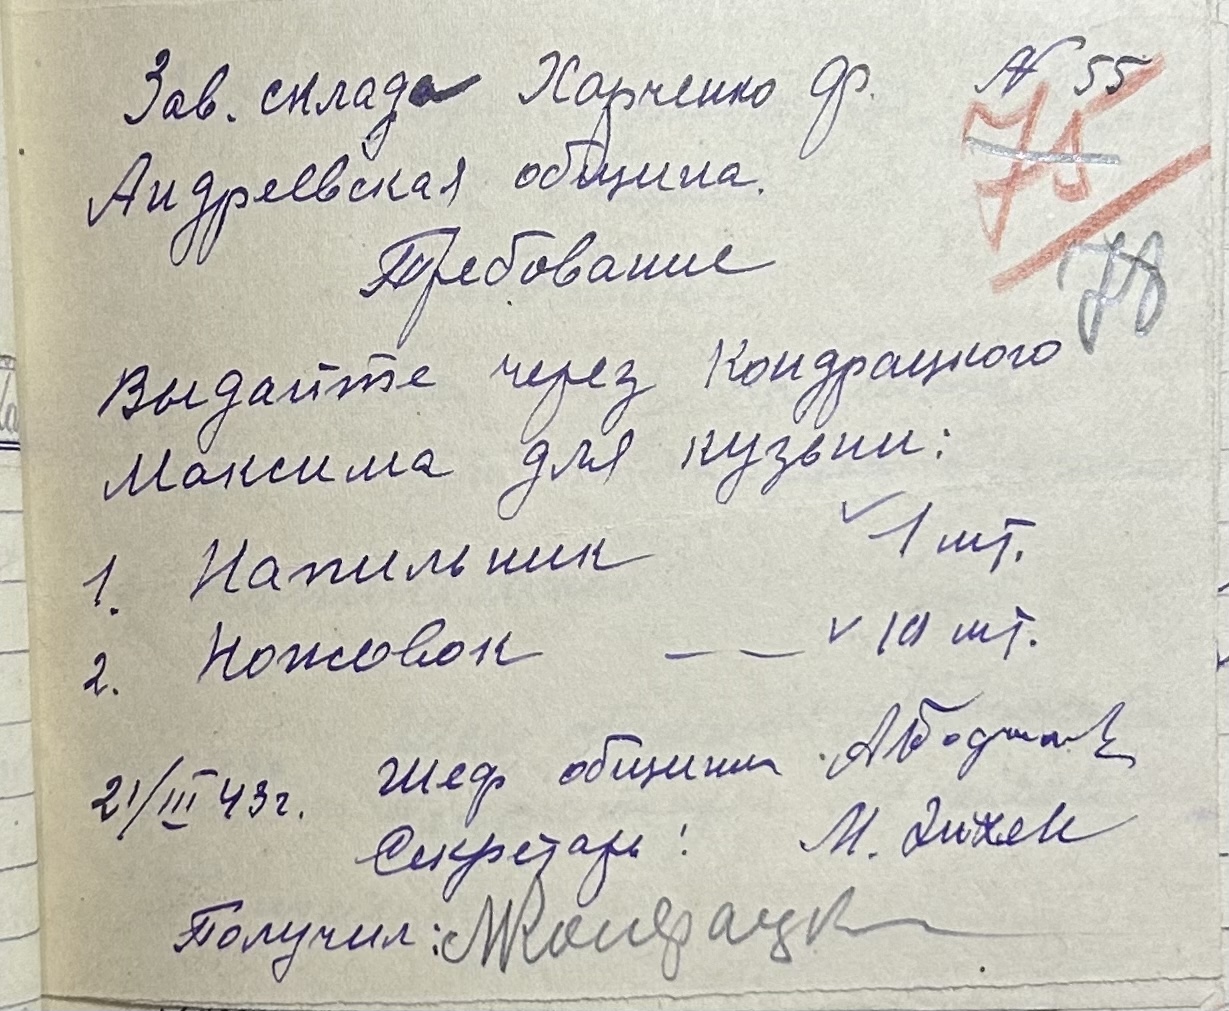 Зав. склада Харченко Ф. № 55
75
Андреевская община.
Требование
78
Выдайте через Кондрацкого
Максима для кузьни:
1. Напильник 1 шт.
2. Ножовок — — 10 шт.
21/III 43г. Шеф общины
Секретарь: М.
Получил: МКондрацк